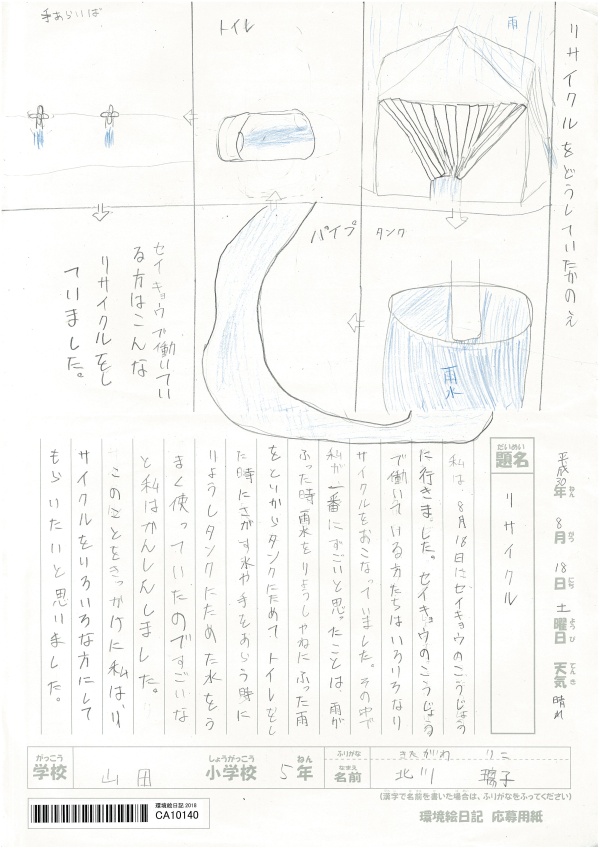 リサイクルをどうしていたかのえ
雨
トイレ
手あらいば
タンク
パイプ
雨水
セイキョウで働いてい
る方はこんな
リサイクルをし
ていました。
平成30年ねん 8月がつ 18日にち 土曜日ようび 天気てんき 晴れ
だいめい
題名
リサイクル
私は、8月18日にセイキョウのこうじょう
に行きました。セイキョウのこうじょう
で働いている方たちはいろいろなリ
サイクルをおこなっていました。その中で
私が一番にすごいと思ったことは、雨が
ふった時雨水をりようしやねにふった雨
をといからタンクにためて、トイレをし
た時にながす水や手をあらう時に
りようしタンクにためた水をう
まく使っていたのですごいな
と私はかんしんしました。
このことをきっかけに私は、リ
サイクルをいろいろな方にして
もらいたいと思いました。
がっこう
学校
山田
しょうがっこう
小学校
5
ねん
年
ふりがな
きたがわ りこ
なまえ
名前
北川 璃子
(漢字で名前を書いた場合は、ふりがなをふってください)
環境絵日記 2018
CA10140
環境絵日記 応募用紙